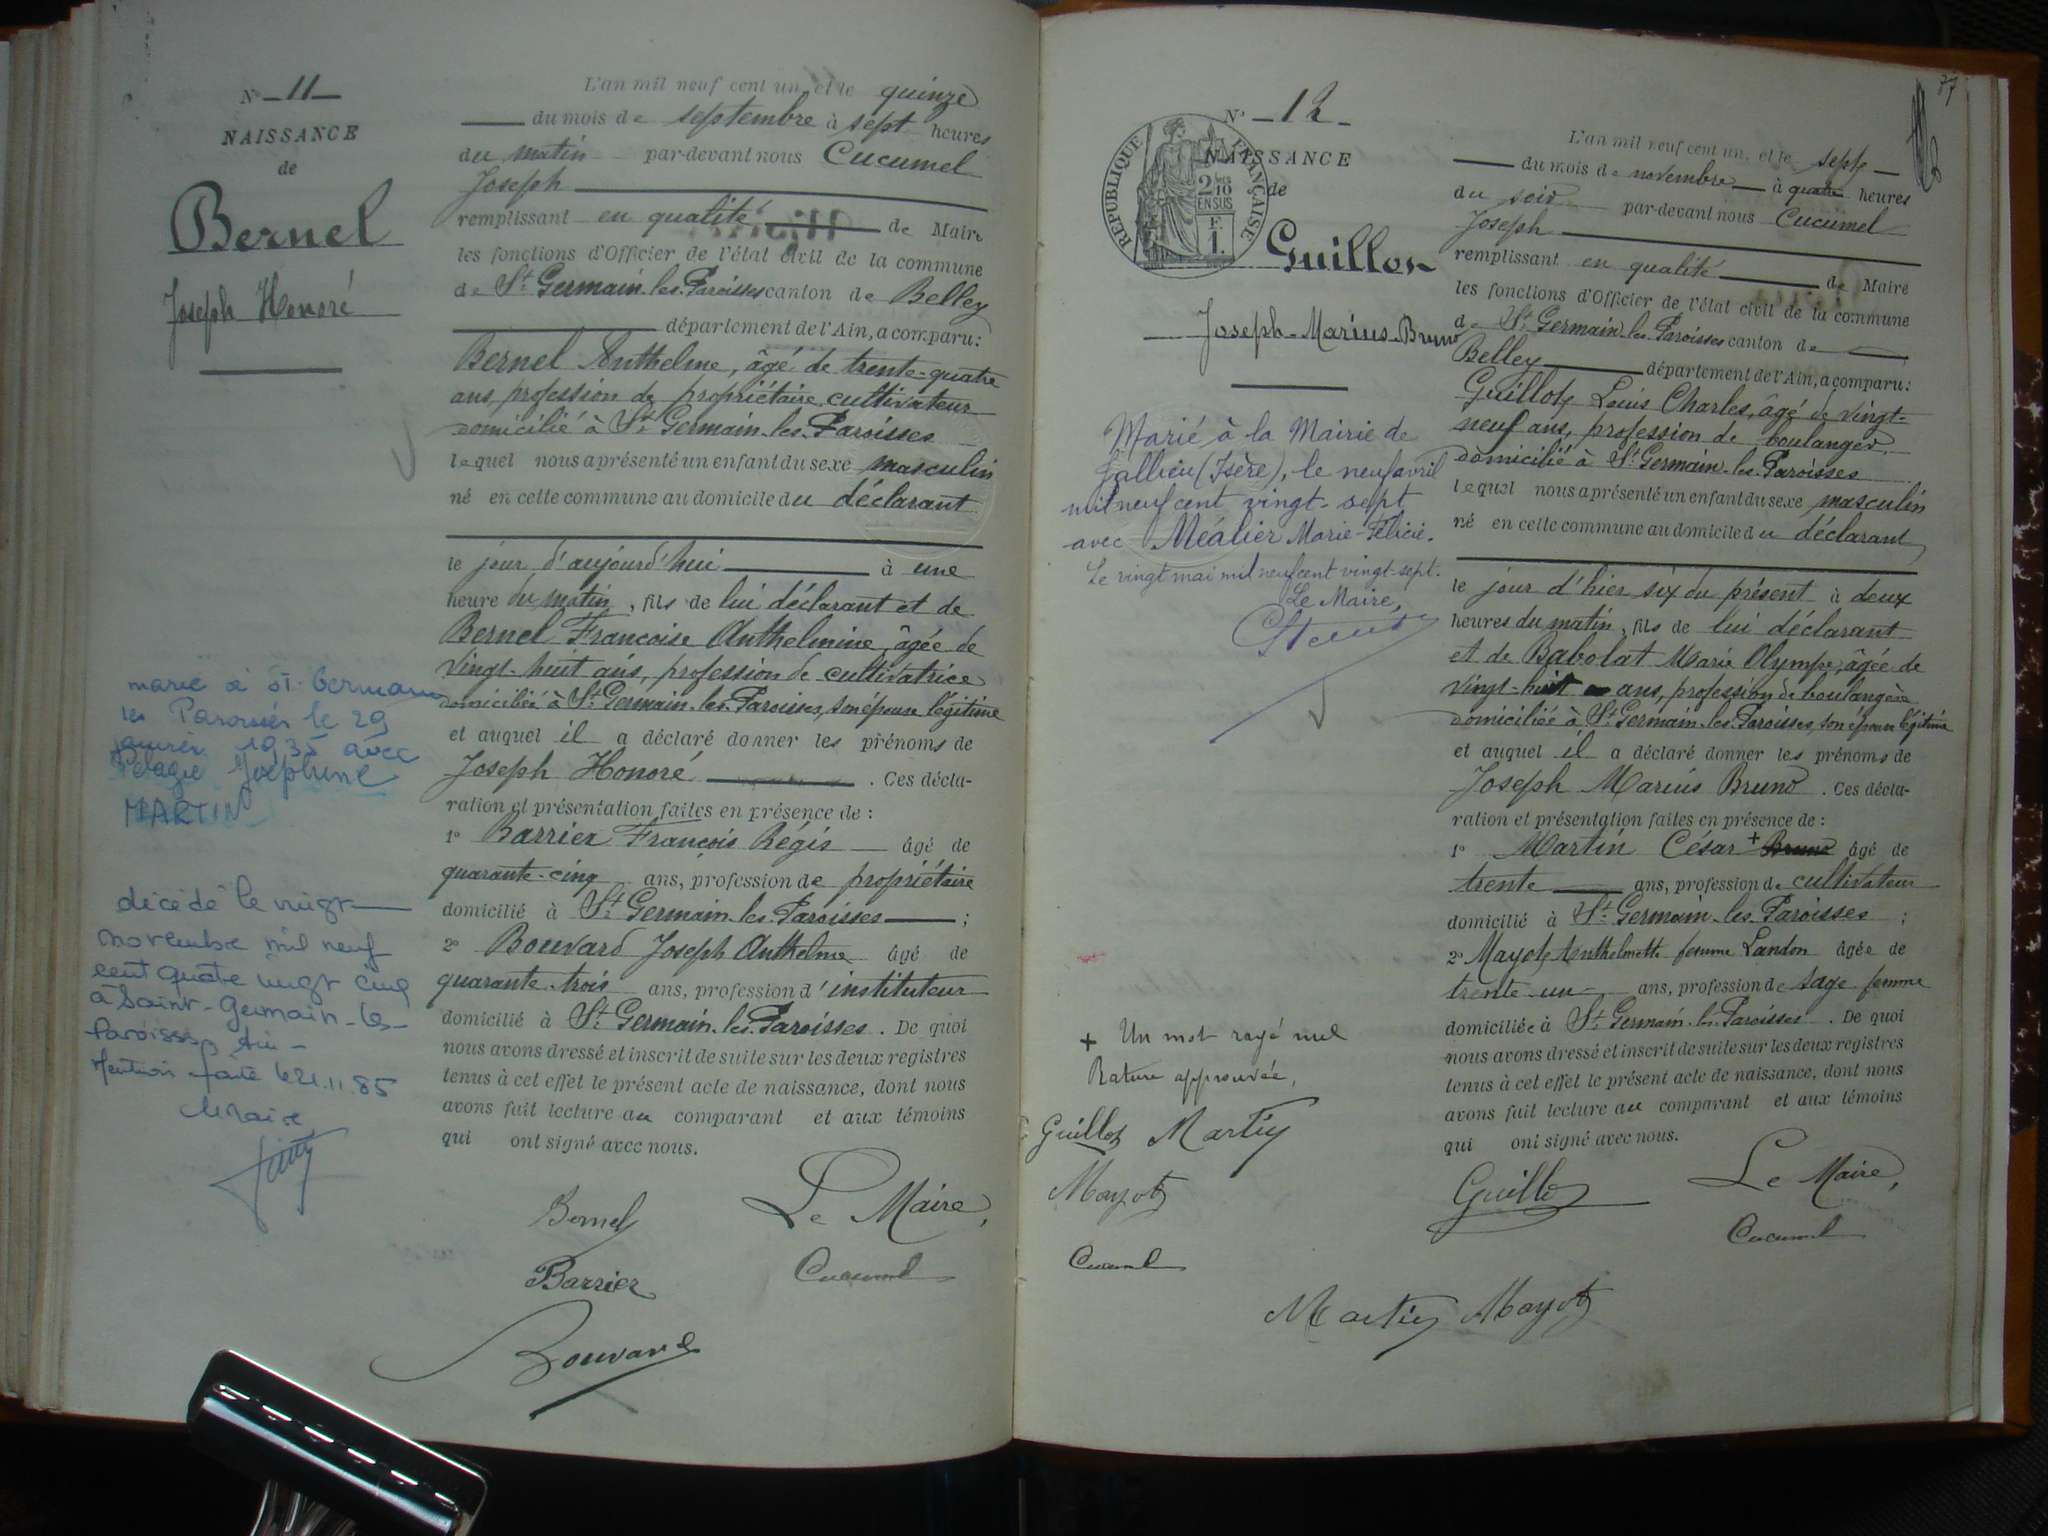 N° 11
NAISSANCE
de
Bernel
Joseph Honoré
marié à St. Germain
les Paroisses le 29
janvier 1935 avec
Pélagie Joséphine
MARTIN
décédé le vingt
novembre mil neuf
cent quatre vingt cinq
à Saint-Germain-les-
Paroisses, Ain -
Mention faite le 21.11.85
Le Maire
L'an mil neuf cent un, et le quinze
du mois de septembre à sept heures
du matin par-devant nous Cucumel
Joseph
remplissant en qualité de Maire
les fonctions d'Officier de l'état civil de la commune
de St. Germain-les-Paroisses canton de Belley
département de l'Ain, a comparu:
Bernel Anthelme, âgé de trente-quatre
ans, profession de propriétaire cultivateur
domicilié à St. Germain-les-Paroisses
lequel nous a présenté un enfant du sexe masculin
né en cette commune au domicile du déclarant
le jour d'aujourd'hui à une
heure du matin, fils de lui déclarant et de
Bernel Françoise Anthelmine, âgée de
vingt-huit ans, profession de cultivatrice
domiciliée à St. Germain-les-Paroisses, son épouse légitime
et auquel il a déclaré donner les prénoms de
Joseph Honoré . Ces décla-
ration et présentation faites en présence de :
1° Barrier François Régis âgé de
quarante-cinq ans, profession de propriétaire
domicilié à St. Germain-les-Paroisses ;
2° Bouvard Joseph Anthelme âgé de
quarante-trois ans, profession d'instituteur
domicilié à St. Germain-les-Paroisses. De quoi
nous avons dressé et inscrit de suite sur les deux registres
tenus à cet effet le présent acte de naissance, dont nous
avons fait lecture au comparant et aux témoins
qui ont signé avec nous.
Bernel Le Maire,
Barrier Cucumel
Bouvard
27
N° 12
NAISSANCE
de
RÉPUBLIQUE FRANÇAISE
2/10
EN SUS
F
1.
Guillot
Joseph-Marius-Bruno
Marié à la Mairie de
Jallieu (Isère), le neuf avril
mil neuf cent vingt-sept
avec Méalier Marie-Félicie.
Le vingt mai mil neuf cent vingt-sept.
Le Maire,
+ Un mot rayé nul
Rature approuvée,
Guillot Martin
Mayot
Cucumel
L'an mil neuf cent un, et le sept
du mois de novembre à quatre heures
du soir par-devant nous Cucumel
Joseph
remplissant en qualité de Maire
les fonctions d'Officier de l'état civil de la commune
de St. Germain-les-Paroisses canton de
Belley département de l'Ain, a comparu:
Guillot Louis Charles, âgé de vingt-
neuf ans, profession de boulanger
domicilié à St. Germain-les-Paroisses
lequel nous a présenté un enfant du sexe masculin
né en cette commune au domicile du déclarant
le jour d'hier six du présent à deux
heures du matin, fils de lui déclarant
et de Babolat Marie Olympe, âgée de
vingt-huit ans, profession de boulangère
domiciliée à St. Germain-les-Paroisses, son épouse légitime
et auquel il a déclaré donner les prénoms de
Joseph Marius Bruno . Ces décla-
ration et présentation faites en présence de :
1° Martin César + Bruno âgé de
trente ans, profession de cultivateur
domicilié à St. Germain-les-Paroisses ;
2° Mayot Anthelmette femme Landon âgée de
trente-un ans, profession de sage femme
domiciliée à St. Germain-les-Paroisses. De quoi
nous avons dressé et inscrit de suite sur les deux registres
tenus à cet effet le présent acte de naissance, dont nous
avons fait lecture au comparant et aux témoins
qui ont signé avec nous.
Guillot Le Maire,
Cucumel
Martin Mayot